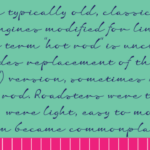 typically old, classic
engines modified for lin
term "hot rod is uncl
des replacement of th
) version, sometimes
rod. Roadsters were t
were light, easy to mo
became commonpla